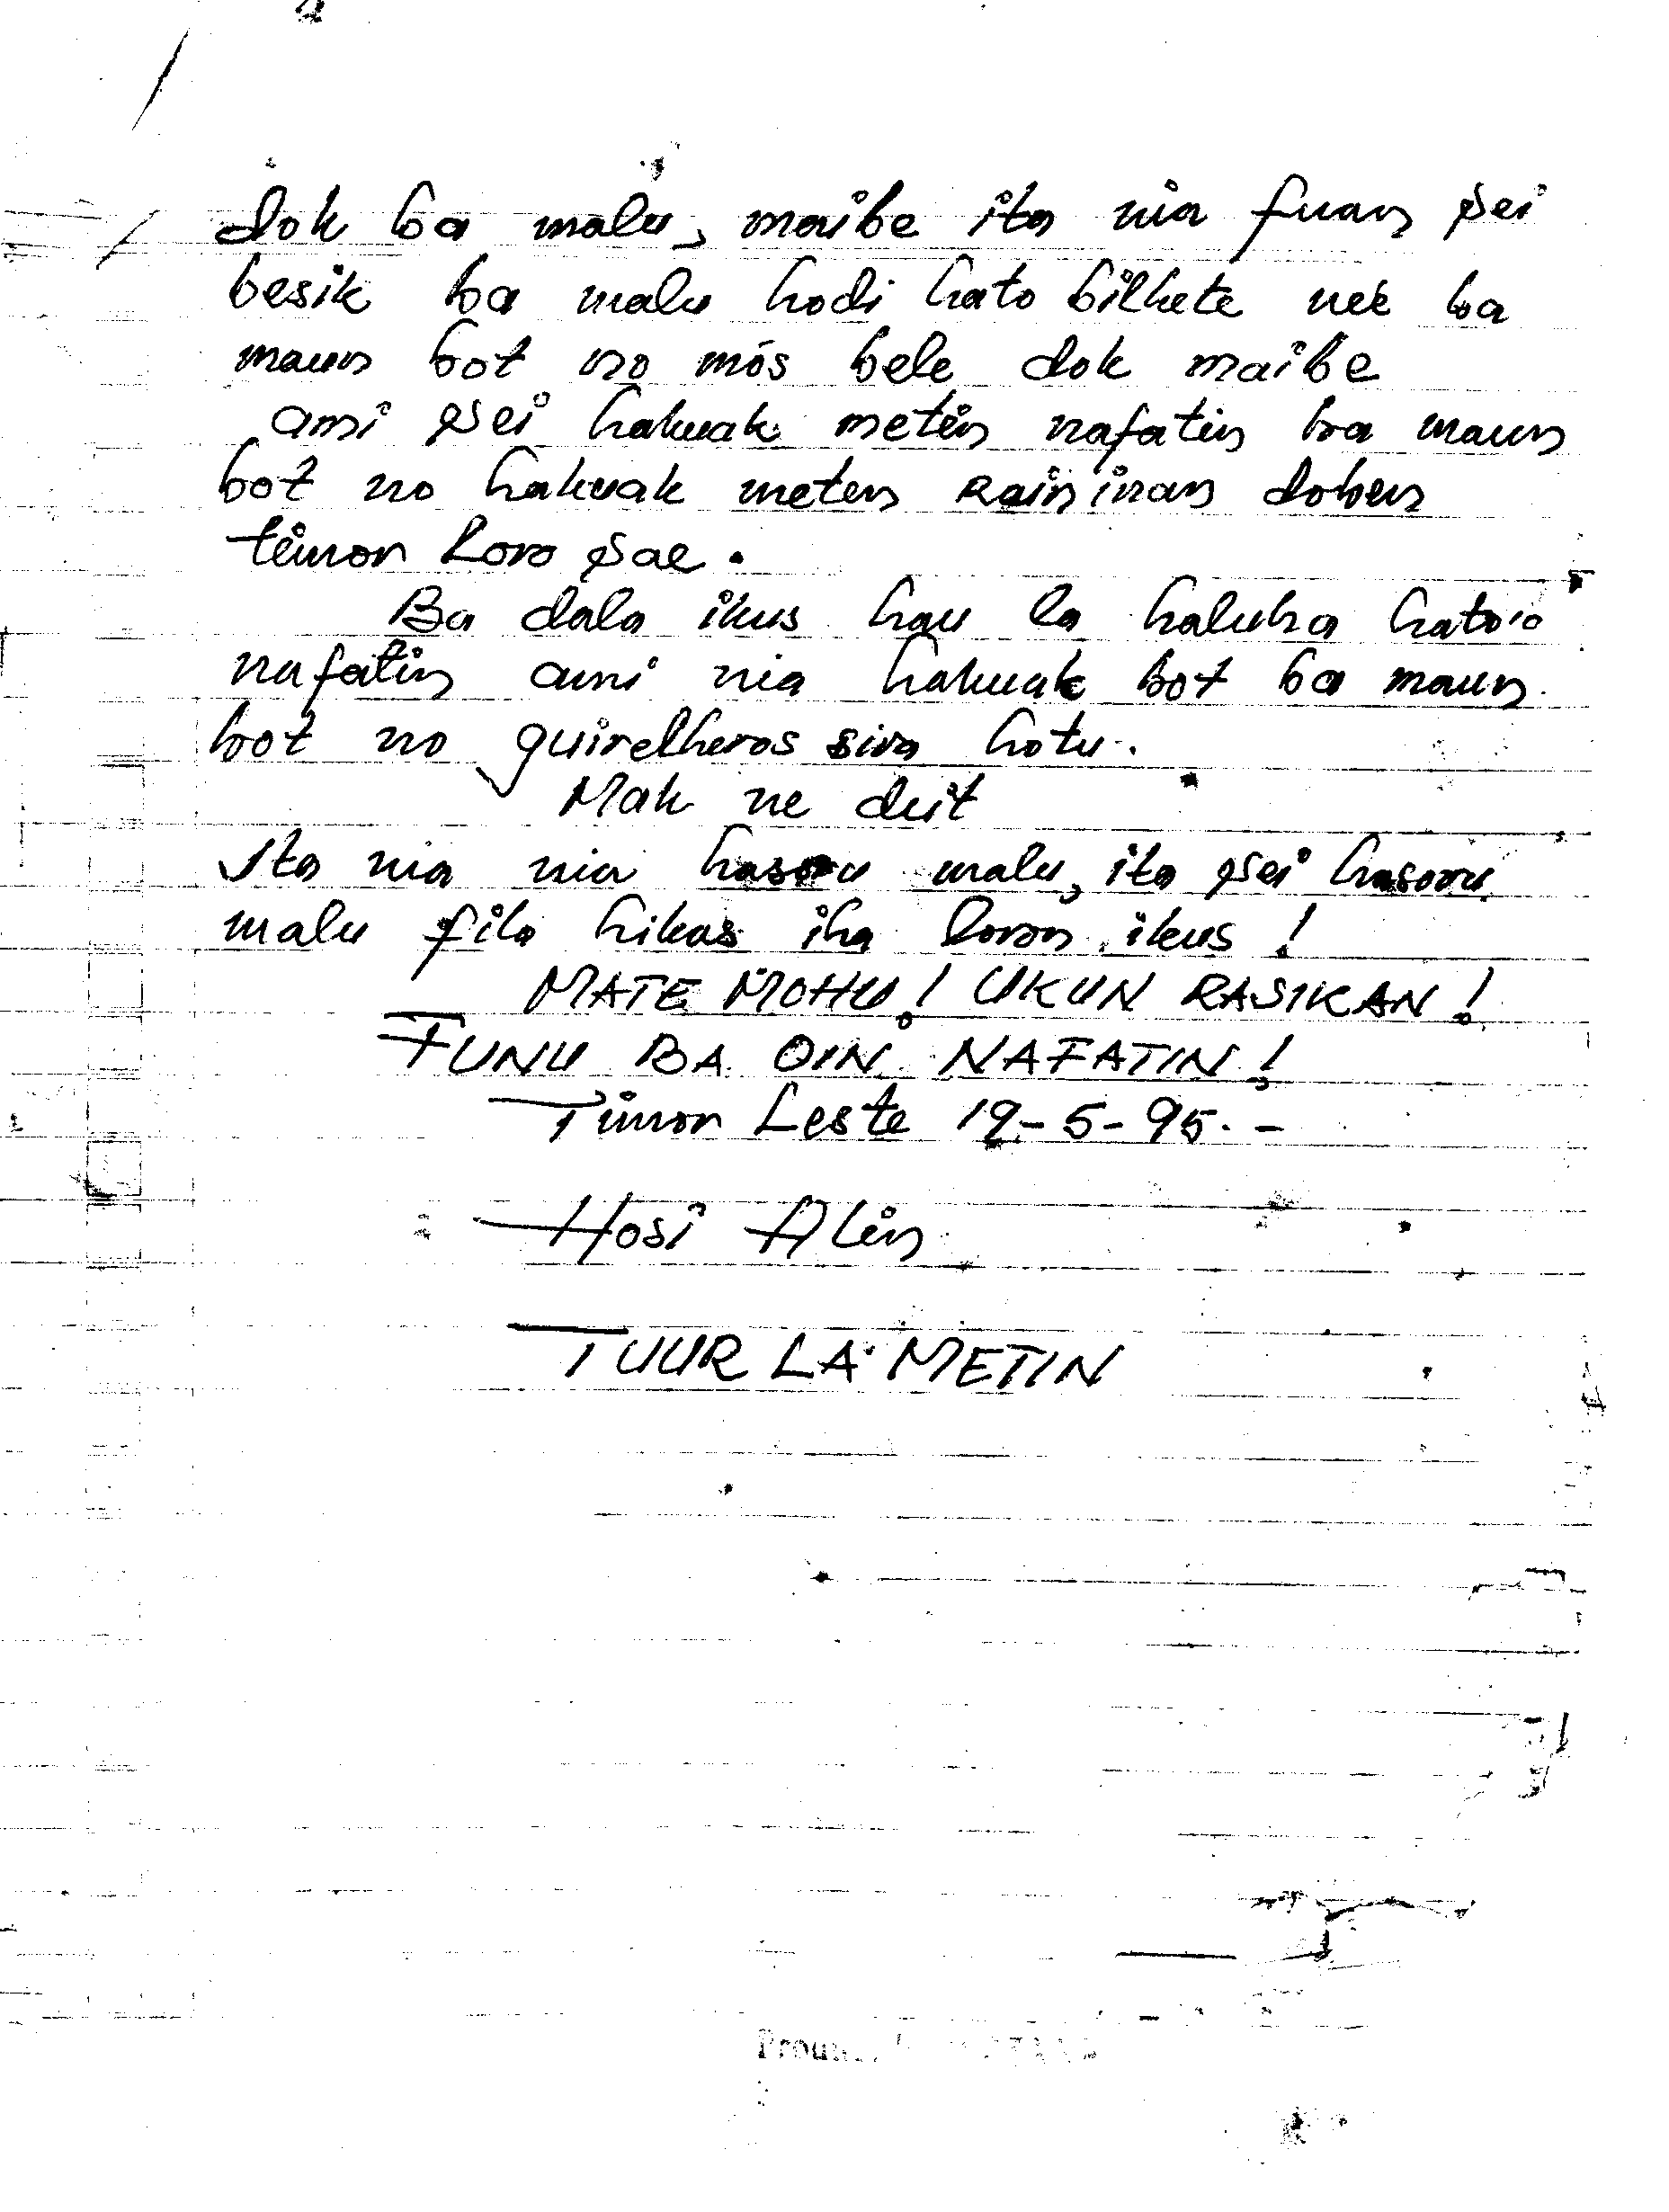 dok ba malu, maibe ita nia fuan sei
besik ba malu hodi hato bilhete neé ba
maun bot no mós bele dok maibe
ami sei hakuak metin nafatin ba maun
bot no hakuak meten Rain inan doben
timor Loro sae.
Ba dala ikus hau la haluha hato'o
nafatin ami nia hakuak bot ba maun
bot no guirelheros sira hotu.
Mak ne deit
Ita nia nia hasoru malu, ita sei hasoru
malu fila hikas iha loron ikus!
MATE MOHU! UKUN RASIKAN!
FUNU BA OIN NAFATIN!
Timor Leste 19-5-95.-
Hosi Alin
TUUR LA METIN